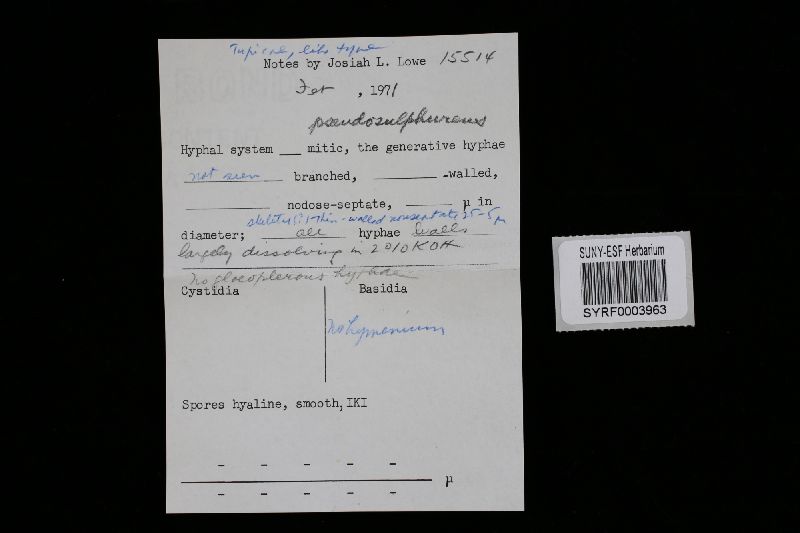 Typical, like type
Notes by Josiah L. Lowe 15514
Feb , 1971
pseudosulphureus
Hyphal system ___ mitic, the generative hyphae
not seen branched, ________ -walled,
________ nodose-septate, ______ μ in
skeletals thin-walled nonseptate 2.5-5μ
diameter; all hyphae walls
largely dissolving in 2% KOH
no gloeopterous hyphae
Cystidia Basidia
No hymenium
Spores hyaline, smooth, IKI
– – – – –
μ
– – – – –
SUNY-ESF Herbarium
SYRF0003963